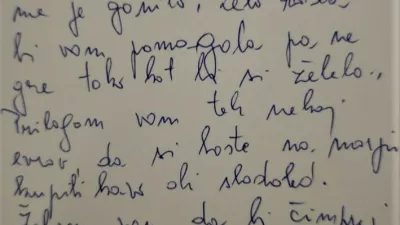 me je ganilo, zelo
bi vam pomagala pa ne
gre tako kot bi si želela.,
Prilagam vam teh nekaj
evrov, da si boste na morju
kupili kavo ali sladoled.
Želim vam da bi čimprej